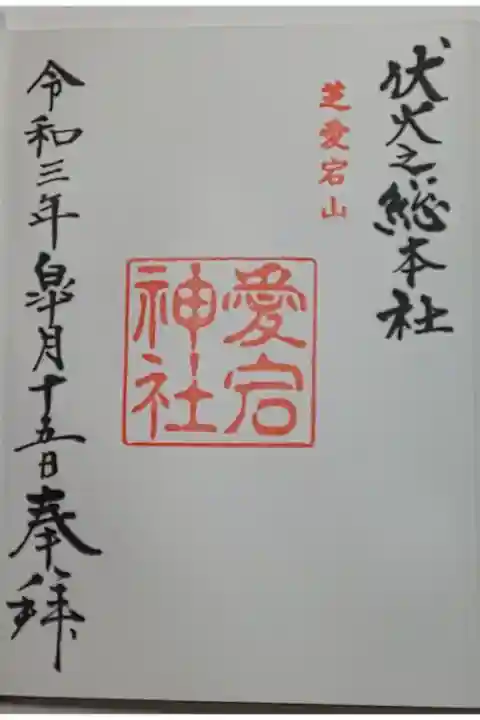 伏火之總本社
芝愛宕山
愛宕
神社
令和三年皐月十五日奉拜